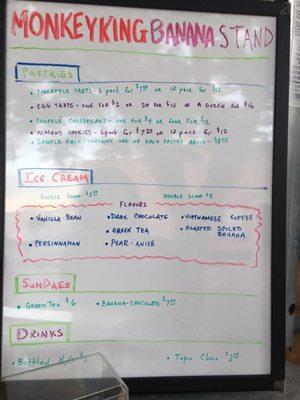 MONKEYKING BANANA STAND
PASTRIES
• PINEAPPLE TARTS 6 pack for $7.50 or 12 pack for $12
• EGG TARTS - ONE FOR $2 or SIX for $10 or A DOZEN for $16
• SOUFFLE CHEESECAKE - ONE FOR $4 or FOUR FOR $12
• ALMOND COOKIES - 6 pack for $7.50 or 12 pack for $12
• SAMPLE PACK: CONTAINS ONE OF EACH PASTRY ABOVE - $8.50
ICE CREAM
SINGLE SCOOP $3.25 DOUBLE SCOOP $5
FLAVORS
• VANILLA BEAN • DARK CHOCOLATE • VIETNAMESE COFFEE
• GREEN TEA • ROASTED SPICED BANANA
• PERSINNAMON • PEAR-ANISE
SUNDAES
• GREEN TEA $6 • BANANA-CHOCOLATE $7.50
DRINKS
• Bottled H2O $2 • Topo Chico $2.50